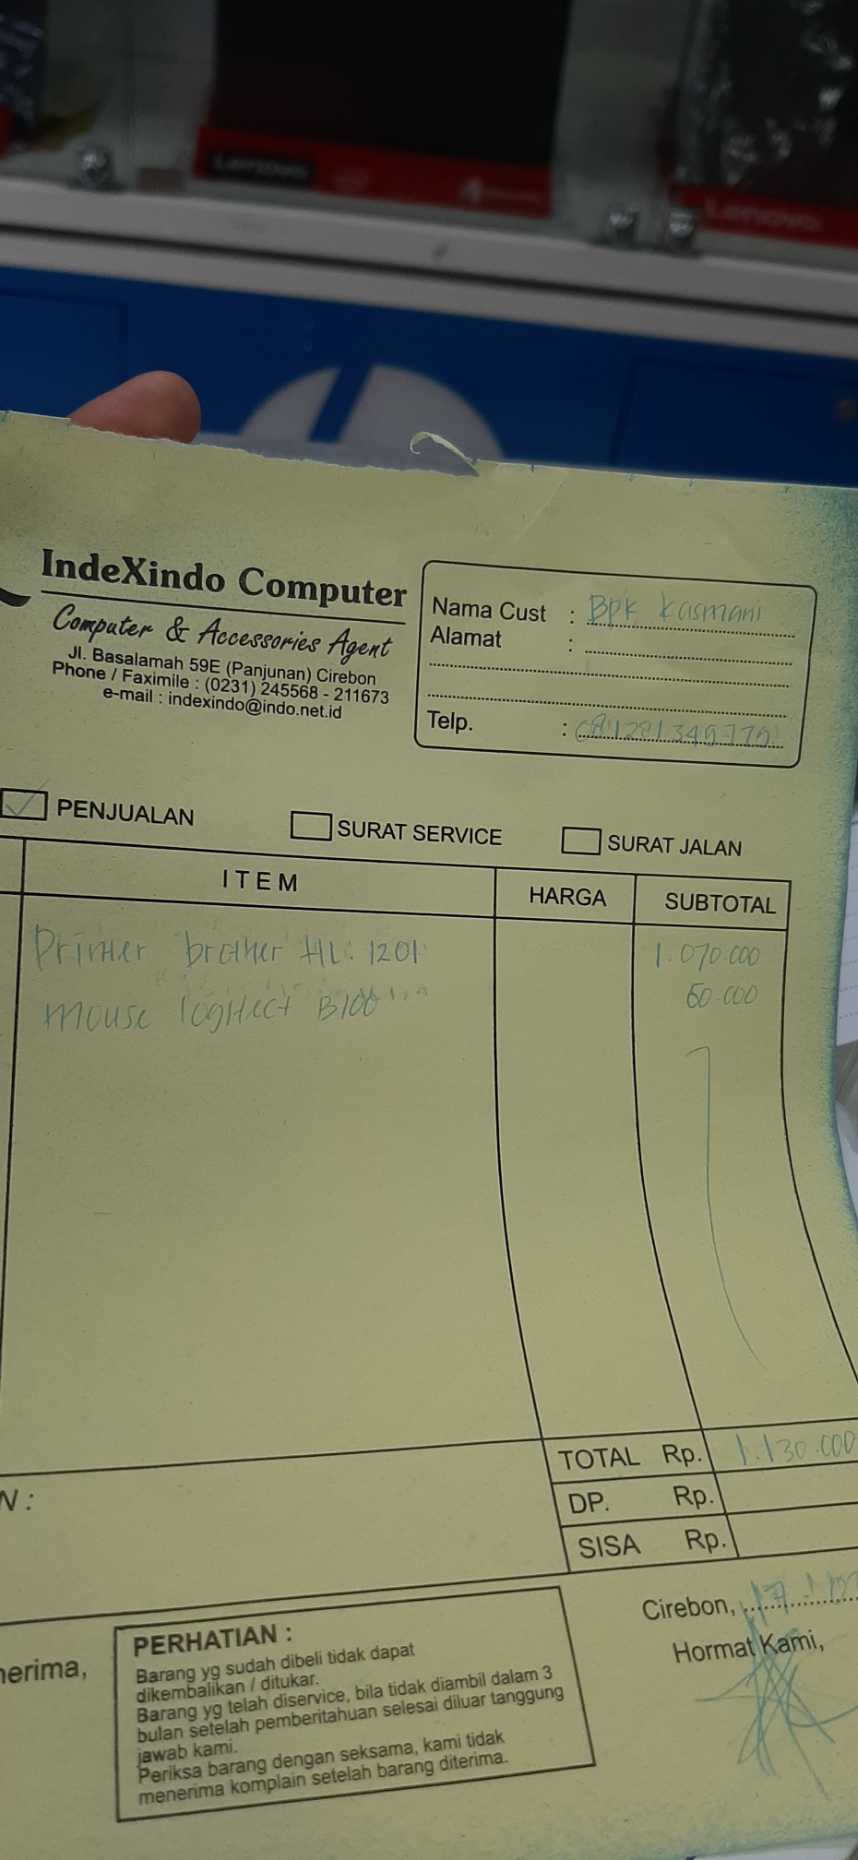 Lenovo
Lenovo
IndeXindo Computer
Computer & Accessories Agent
Jl. Basalamah 59E (Panjunan) Cirebon
Phone / Faximile : (0231) 245568 - 211673
e-mail : indexindo@indo.net.id
Nama Cust : Bpk Kasmani
Alamat :
Telp. :
PENJUALAN
SURAT SERVICE
SURAT JALAN
ITEM HARGA SUBTOTAL
Printer brother HL: 1201 1.070.000
mouse logitect B100 60.000
TOTAL Rp. 1.130.000
N :
DP. Rp.
SISA Rp.
Cirebon,
Hormat Kami,
nerima,
PERHATIAN :
Barang yg sudah dibeli tidak dapat
dikembalikan / ditukar.
Barang yg telah diservice, bila tidak diambil dalam 3
bulan setelah pemberitahuan selesai diluar tanggung
jawab kami.
Periksa barang dengan seksama, kami tidak
menerima komplain setelah barang diterima.